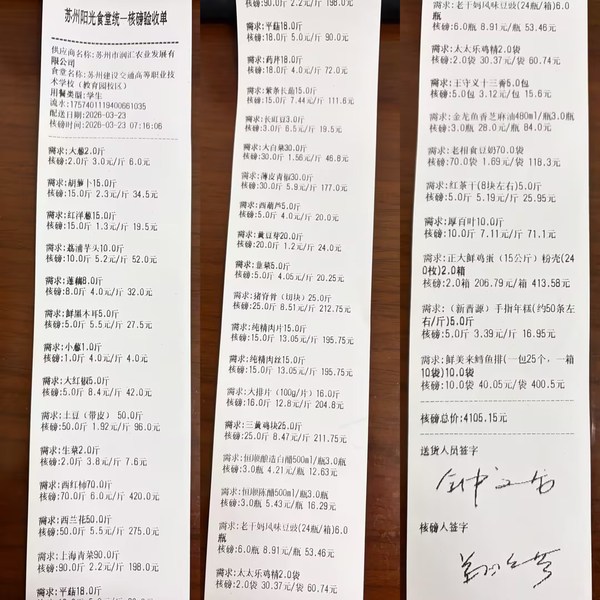 苏州阳光食堂统一核磅验收单
供应商名称:苏州市润汇农业发展有
限公司
食堂名称:苏州建设交通高等职业技
术学校（教育园校区）
用餐类型:学生
流水:1757401119400661035
配送日期:2026-03-23
核磅时间:2026-03-23 07:16:06
需求:大葱2.0斤
核磅:2.0斤 3.0元/斤 6.0元
需求:胡萝卜15.0斤
核磅:15.0斤 2.3元/斤 34.5元
需求:红洋葱15.0斤
核磅:15.0斤 1.3元/斤 19.5元
需求:荔浦芋头10.0斤
核磅:10.0斤 5.2元/斤 52.0元
需求:莲藕8.0斤
核磅:8.0斤 4.0元/斤 32.0元
需求:鲜黑木耳5.0斤
核磅:5.0斤 5.5元/斤 27.5元
需求:小葱1.0斤
核磅:1.0斤 4.0元/斤 4.0元
需求:大红椒5.0斤
核磅:5.0斤 8.4元/斤 42.0元
需求:土豆（带皮） 50.0斤
核磅:50.0斤 1.92元/斤 96.0元
需求:生菜2.0斤
核磅:2.0斤 3.8元/斤 7.6元
需求:西红柿70.0斤
核磅:70.0斤 6.0元/斤 420.0元
需求:西兰花50.0斤
核磅:50.0斤 5.5元/斤 275.0元
需求:上海青菜90.0斤
核磅:90.0斤 2.2元/斤 198.0元
需求:平菇18.0斤
核磅:90.0斤 2.2元/斤 198.0元
需求:平菇18.0斤
核磅:18.0斤 5.0元/斤 90.0元
需求:药芹18.0斤
核磅:18.0斤 4.0元/斤 72.0元
需求:紫条长茄15.0斤
核磅:15.0斤 7.44元/斤 111.6元
需求:长豇豆3.0斤
核磅:3.0斤 6.5元/斤 19.5元
需求:大白菜30.0斤
核磅:30.0斤 1.56元/斤 46.8元
需求:薄皮青椒30.0斤
核磅:30.0斤 5.9元/斤 177.0元
需求:西葫芦5.0斤
核磅:5.0斤 4.0元/斤 20.0元
需求:黄豆芽20.0斤
核磅:20.0斤 1.2元/斤 24.0元
需求:韭菜5.0斤
核磅:5.0斤 4.05元/斤 20.25元
需求:猪脊骨（切块）25.0斤
核磅:25.0斤 8.51元/斤 212.75元
需求:纯精肉片15.0斤
核磅:15.0斤 13.05元/斤 195.75元
需求:纯精肉丝15.0斤
核磅:15.0斤 13.05元/斤 195.75元
需求:大排片（100g/片）16.0斤
核磅:16.0斤 12.8元/斤 204.8元
需求:三黄鸡块25.0斤
核磅:25.0斤 8.47元/斤 211.75元
需求:恒顺酿造白醋500ml/瓶3.0瓶
核磅:3.0瓶 4.21元/瓶 12.63元
需求:恒顺陈醋500ml/瓶3.0瓶
核磅:3.0瓶 5.43元/瓶 16.29元
需求:老干妈风味豆豉(24瓶/箱)6.0
瓶
核磅:6.0瓶 8.91元/瓶 53.46元
需求:太太乐鸡精2.0袋
核磅:2.0袋 30.37元/袋 60.74元
需求:老干妈风味豆豉(24瓶/箱)6.0
瓶
核磅:6.0瓶 8.91元/瓶 53.46元
需求:太太乐鸡精2.0袋
核磅:2.0袋 30.37元/袋 60.74元
需求:王守义十三香5.0包
核磅:5.0包 3.12元/包 15.6元
需求:金龙鱼香芝麻油480ml/瓶3.0瓶
核磅:3.0瓶 28.0元/瓶 84.0元
需求:老相食豆奶70.0袋
核磅:70.0袋 1.69元/袋 118.3元
需求:红茶干(8块左右)5.0斤
核磅:5.0斤 5.19元/斤 25.95元
需求:厚百叶10.0斤
核磅:10.0斤 7.11元/斤 71.1元
需求:正大鲜鸡蛋（15公斤）粉壳(24
0枚)2.0箱
核磅:2.0箱 206.79元/箱 413.58元
需求:（新香源）手指年糕(约50条左
右/斤)5.0斤
核磅:5.0斤 3.39元/斤 16.95元
需求:鲜美来鳕鱼排(一包25个，一箱
10袋)10.0袋
核磅:10.0袋 40.05元/袋 400.5元
核磅总价:4105.15元
送货人员签字
核磅人签字